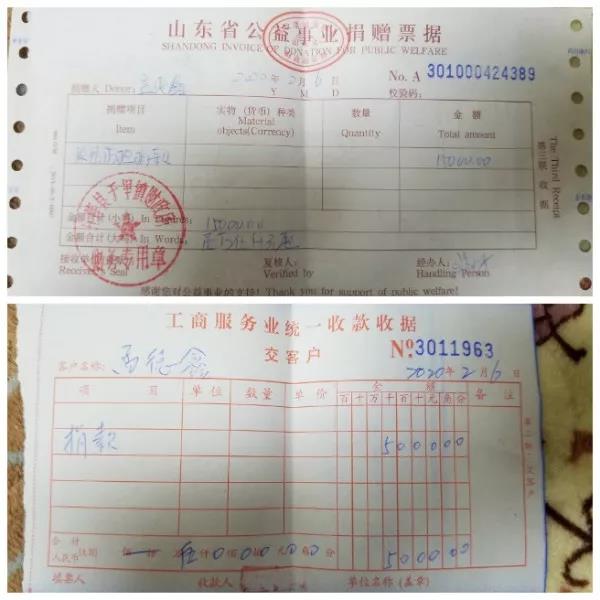 山东省公益事业捐赠票据
SHANDONG INVOICE OF DONATION FOR PUBLIC WELFARE
捐赠人 Donor: 2020年2月6日 No. A 301000424389
Y M D 校验码:
捐赠项目 实物(货币)种类 数量 金额
Item Material objects(Currency) Quantity Total amount
15000.00
金额合计(小写) In Figures: 15000.00
金额合计(大写) In Words:
接收单位(盖章) 复核人: 经办人:
Receiver's Seal Verified by Handling Person
感谢您对公益事业的支持! Thank you for support of public welfare!
The Third Receipt
第三联 收据
财政所
财务专用章
工商服务业统一收款收据
交客户 No 3011963
客户名称: 2020年2月6日
项目 单位 数量 单价 金额 备注
百十万千百十元角分
捐款 500000
合计
人民币(大写) 佰 拾 万 伍仟0佰0拾0元0角0分 500000
填票人 收款人 单位名称(盖章)